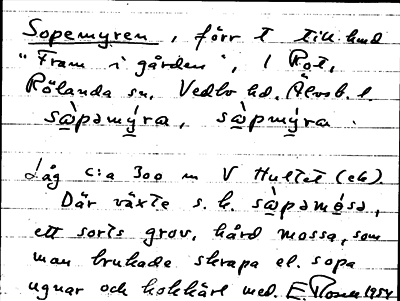 Sopemyren, förr t till hmd
"Fram i gården", i Rot,
Rölanda sn, Vedbo hd. Älvsb. l.
såpəmýra, sàpmýra.
Låg c:a 300 m V Hultet (ek).
Där växte s. k. såpəməsa,
ett sorts grov, hård mossa, som
man brukade skrapa el. sopa
ugnar och kokkärl med. E 1954